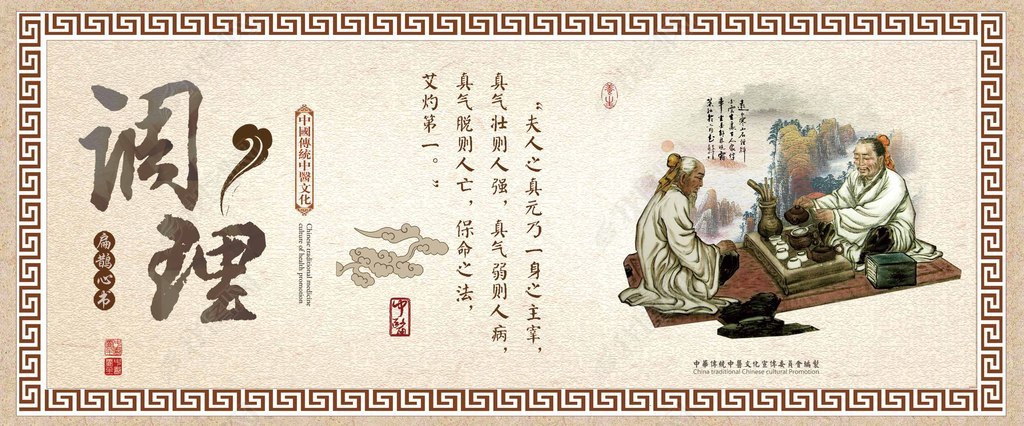 调理
扁鹊心书
中國傳統中醫文化
Chinese traditional medicine
culture of health promotion
“夫人之真元乃一身之主宰，
真气壮则人强，真气弱则人病，
真气脱则人亡，保命之法，
艾灼第一。”
中醫
養生
中華傳統中醫文化宣傳委員會編製
China traditional Chinese cultural Promotion